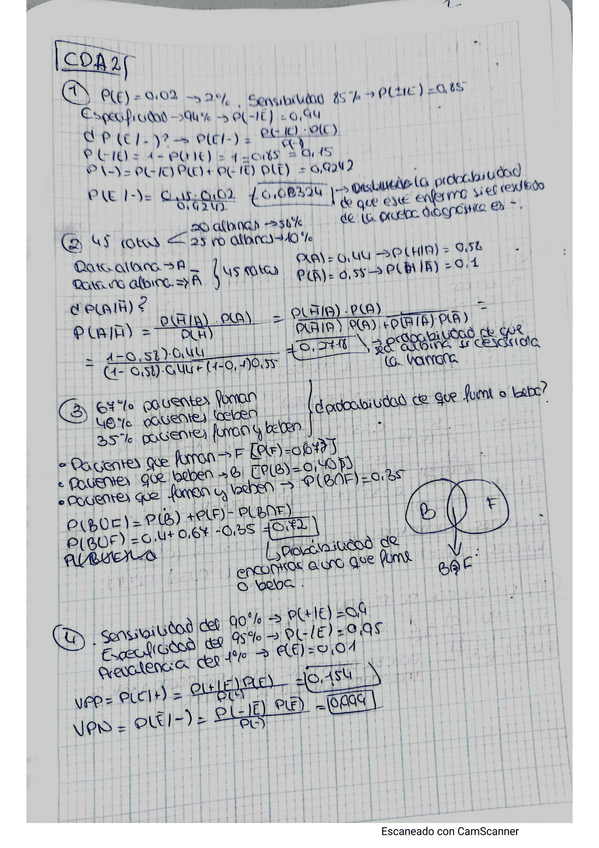 CDA2
① P(E) = 0,02 → 2%. Sensibilidad 85% → P(+/E) = 0,85
Especificidad → 94% → P(-/Ē) = 0,94
d P(E/-)? → P(E/-) = P(-/E)·P(E) / P(-)
P(-/E) = 1 - P(+/E) = 1 - 0,85 = 0,15
P(-) = P(-/E) P(E) + P(-/Ē) P(Ē) = 0,9242
P(E/-) = 0,15·0,02 / 0,9242 = 0,00324 → la probabilidad
de que esté enfermo si el resultado
de la prueba diagnóstica es -.
② 45 ratas < 20 albinas → 58%
25 no albinas → 10%
Rata albina → A
Rata no albina → Ā } 45 ratas
P(A) = 0,44 → P(H/A) = 0,58
P(Ā) = 0,55 → P(H/Ā) = 0,1
d P(A/H̄)?
P(A/H̄) = P(H̄/A) · P(A) / P(H̄) = P(H̄/A) · P(A) / P(H̄/A) P(A) + P(H̄/Ā) P(Ā) =
= (1-0,58)·0,44 / (1-0,58)·0,44 + (1-0,1)0,55 = 0,2718 → probabilidad de que
sea albina si
la
③ 67% pacientes fuman
40% pacientes beben
35% pacientes fuman y beben
d probabilidad de que fume o beba?
• Pacientes que fuman → F [P(F) = 0,67]
• Pacientes que beben → B [P(B) = 0,40]
• Pacientes que fuman y beben → P(B∩F) = 0,35
P(B∪F) = P(B) + P(F) - P(B∩F)
P(B∪F) = 0,4 + 0,67 - 0,35 = 0,72
↳ Probabilidad de
encontrar a uno que fume
o beba.
B F
B∩F
④ . Sensibilidad del 90% → P(+/E) = 0,9
Especificidad del 95% → P(-/Ē) = 0,95
Prevalencia del 1% → P(E) = 0,01
VPP = P(E/+) = P(+/E) P(E) / P(+) = 0,154
VPN = P(Ē/-) = P(-/Ē) P(Ē) / P(-) = 0,999
Escaneado con CamScanner